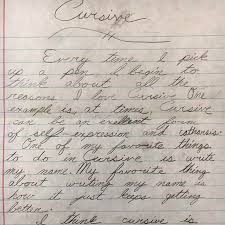 Cursive
Every time I pick
up a pen I begin to
think about all the
reasons I love cursive. One
example is, at times, Cursive
can be an exellent form
of self-expression and catharsis.
One of my favorite things
to do in Cursive is write
my name. My favorite thing
about writing my name is
how it just keeps getting
better.
I think cursive is